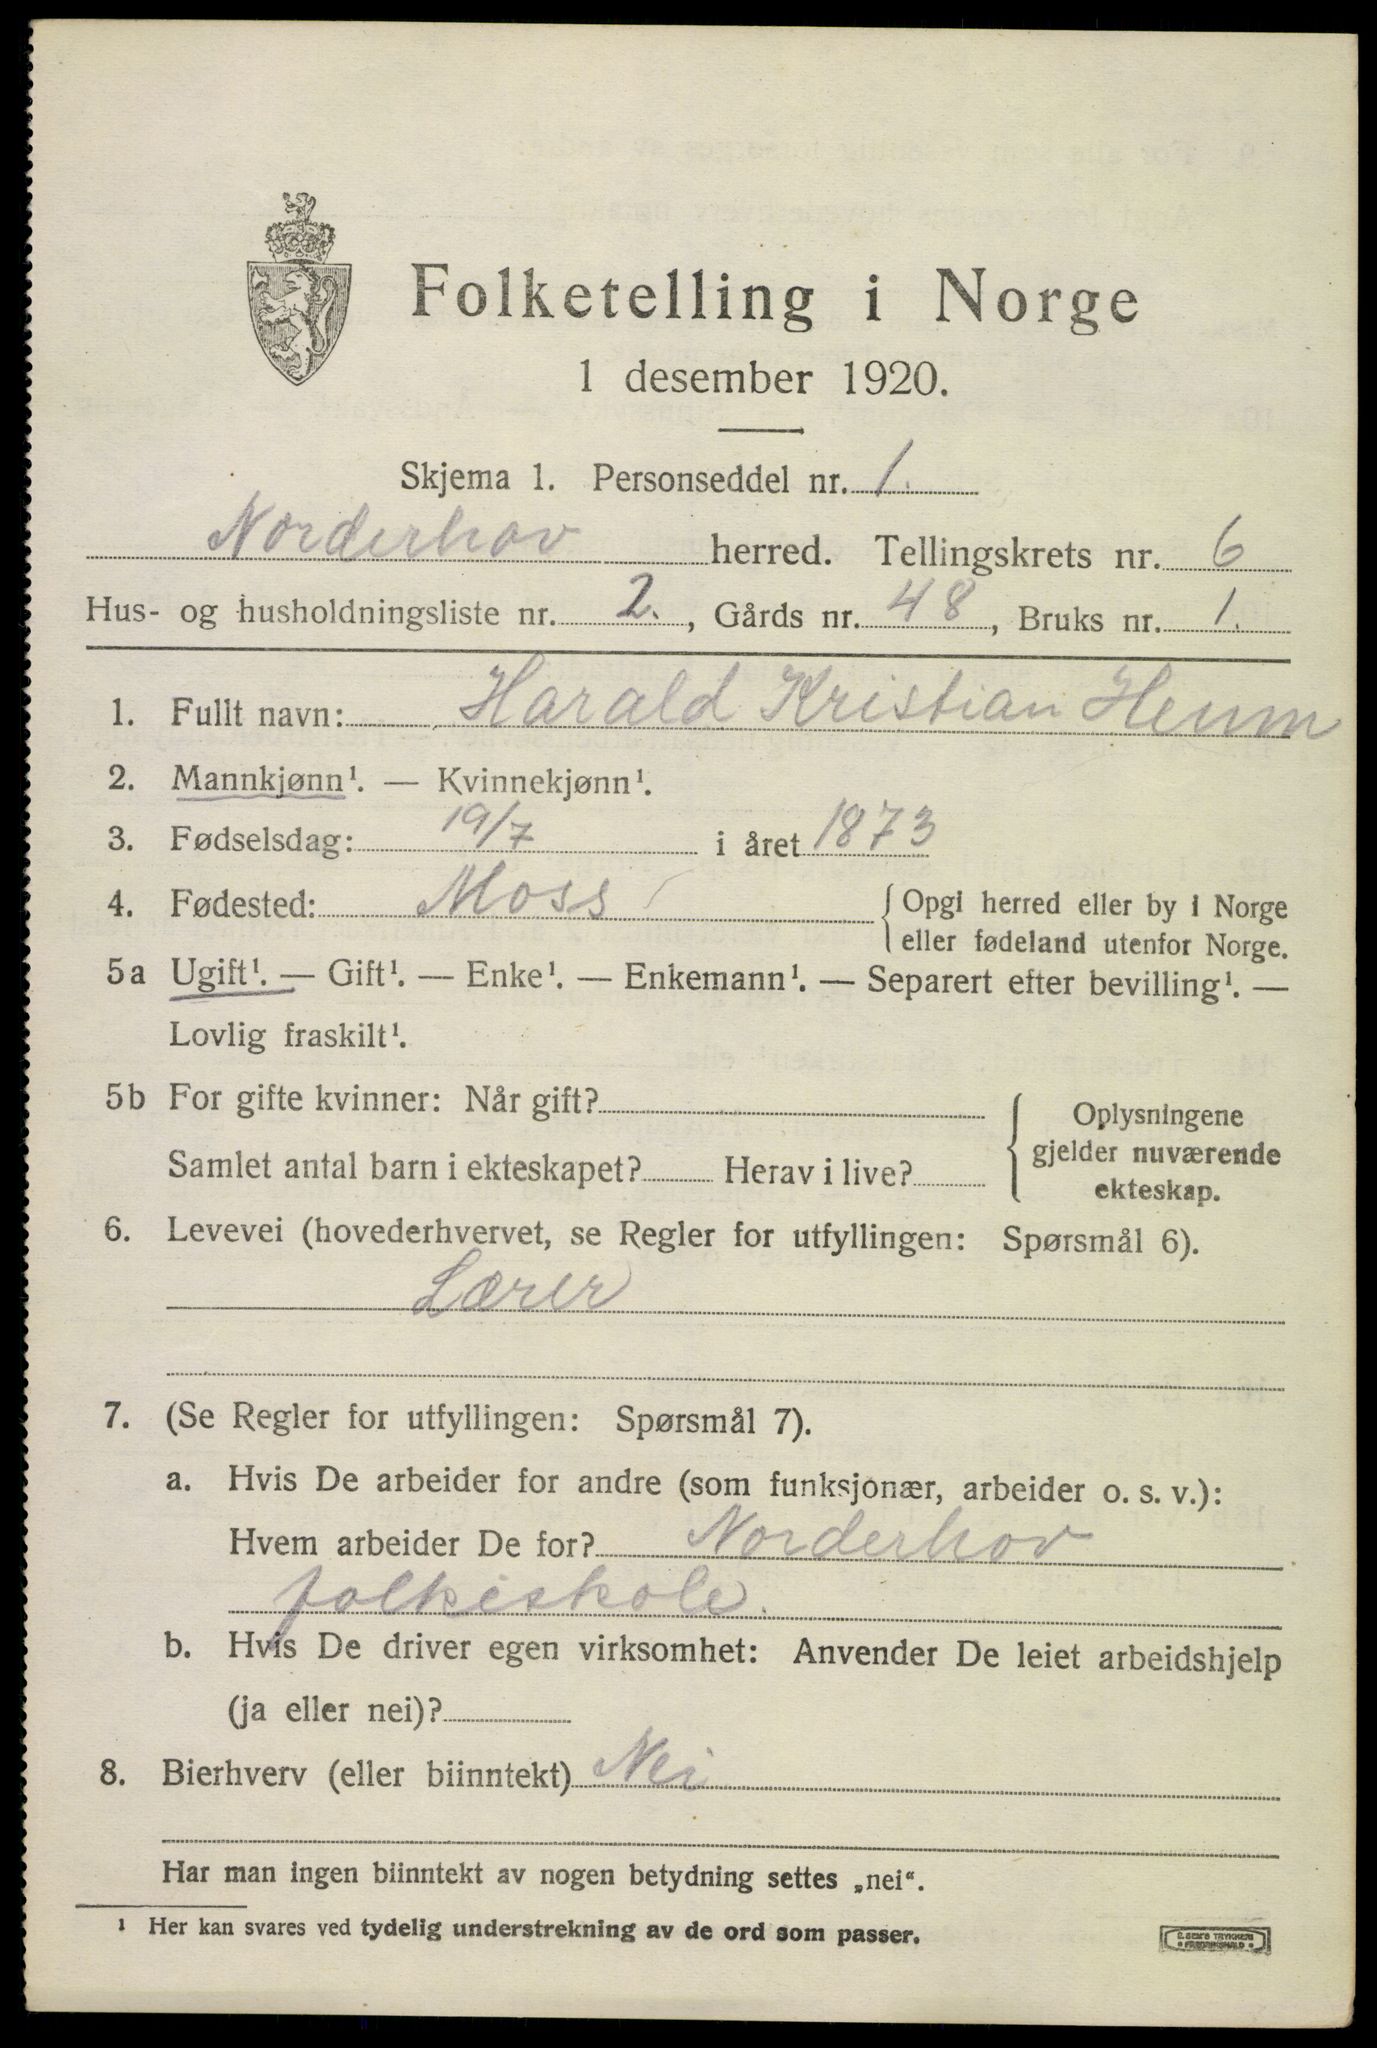 Folketelling i Norge
1 desember 1920.
Skjema 1. Personseddel nr. 1.
Norderhov herred. Tellingskrets nr. 6
Hus- og husholdningsliste nr. 2., Gårds nr. 48, Bruks nr. 1.
1. Fullt navn: Harald Kristian Heum
2. Mannkjønn¹. — Kvinnekjønn¹.
3. Fødselsdag: 19/7 i året 1873
4. Fødested: Moss { Opgi herred eller by i Norge
eller fødeland utenfor Norge.
5a Ugift¹. — Gift¹. — Enke¹. — Enkemann¹. — Separert efter bevilling¹. —
Lovlig fraskilt¹.
5b For gifte kvinner: Når gift?
Samlet antal barn i ekteskapet? Herav i live?
{ Oplysningene
gjelder nuværende
ekteskap.
6. Levevei (hovederhvervet, se Regler for utfyllingen: Spørsmål 6).
Lærer
7. (Se Regler for utfyllingen: Spørsmål 7).
a. Hvis De arbeider for andre (som funksjonær, arbeider o. s. v.):
Hvem arbeider De for? Norderhov
folkeskole.
b. Hvis De driver egen virksomhet: Anvender De leiet arbeidshjelp
(ja eller nei)?
8. Bierhverv (eller biinntekt) Nei
Har man ingen biinntekt av nogen betydning settes „nei“.
¹ Her kan svares ved tydelig understrekning av de ord som passer.